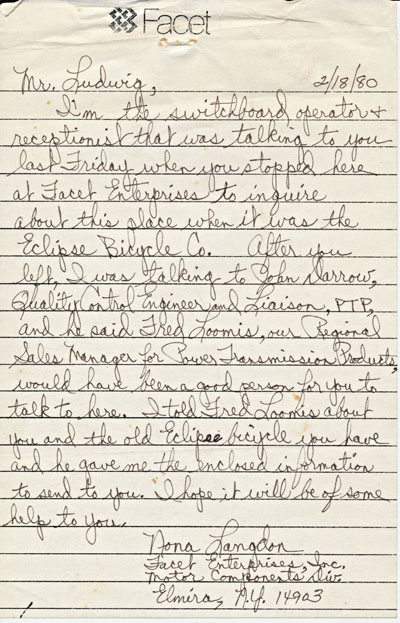 Facet
Mr. Ludwig, 2/18/80
I'm the switchboard operator &
receptionist that was talking to you
last Friday when you stopped here
at Facet Enterprises to inquire
about this place when it was the
Eclipse Bicycle Co. After you
left, I was talking to John Darrow,
Quality Control Engineer and Liaison, PTP,
and he said Fred Loomis, our Regional
Sales Manager for Power Transmission Products,
would have been a good person for you to
talk to here. I told Fred Loomis about
you and the old Eclipse bicycle you have
and he gave me the enclosed information
to send to you. I hope it will be of some
help to you.
Nona Langdon
Facet Enterprises, Inc.
Motor Components Div.
Elmira, N.Y. 14903